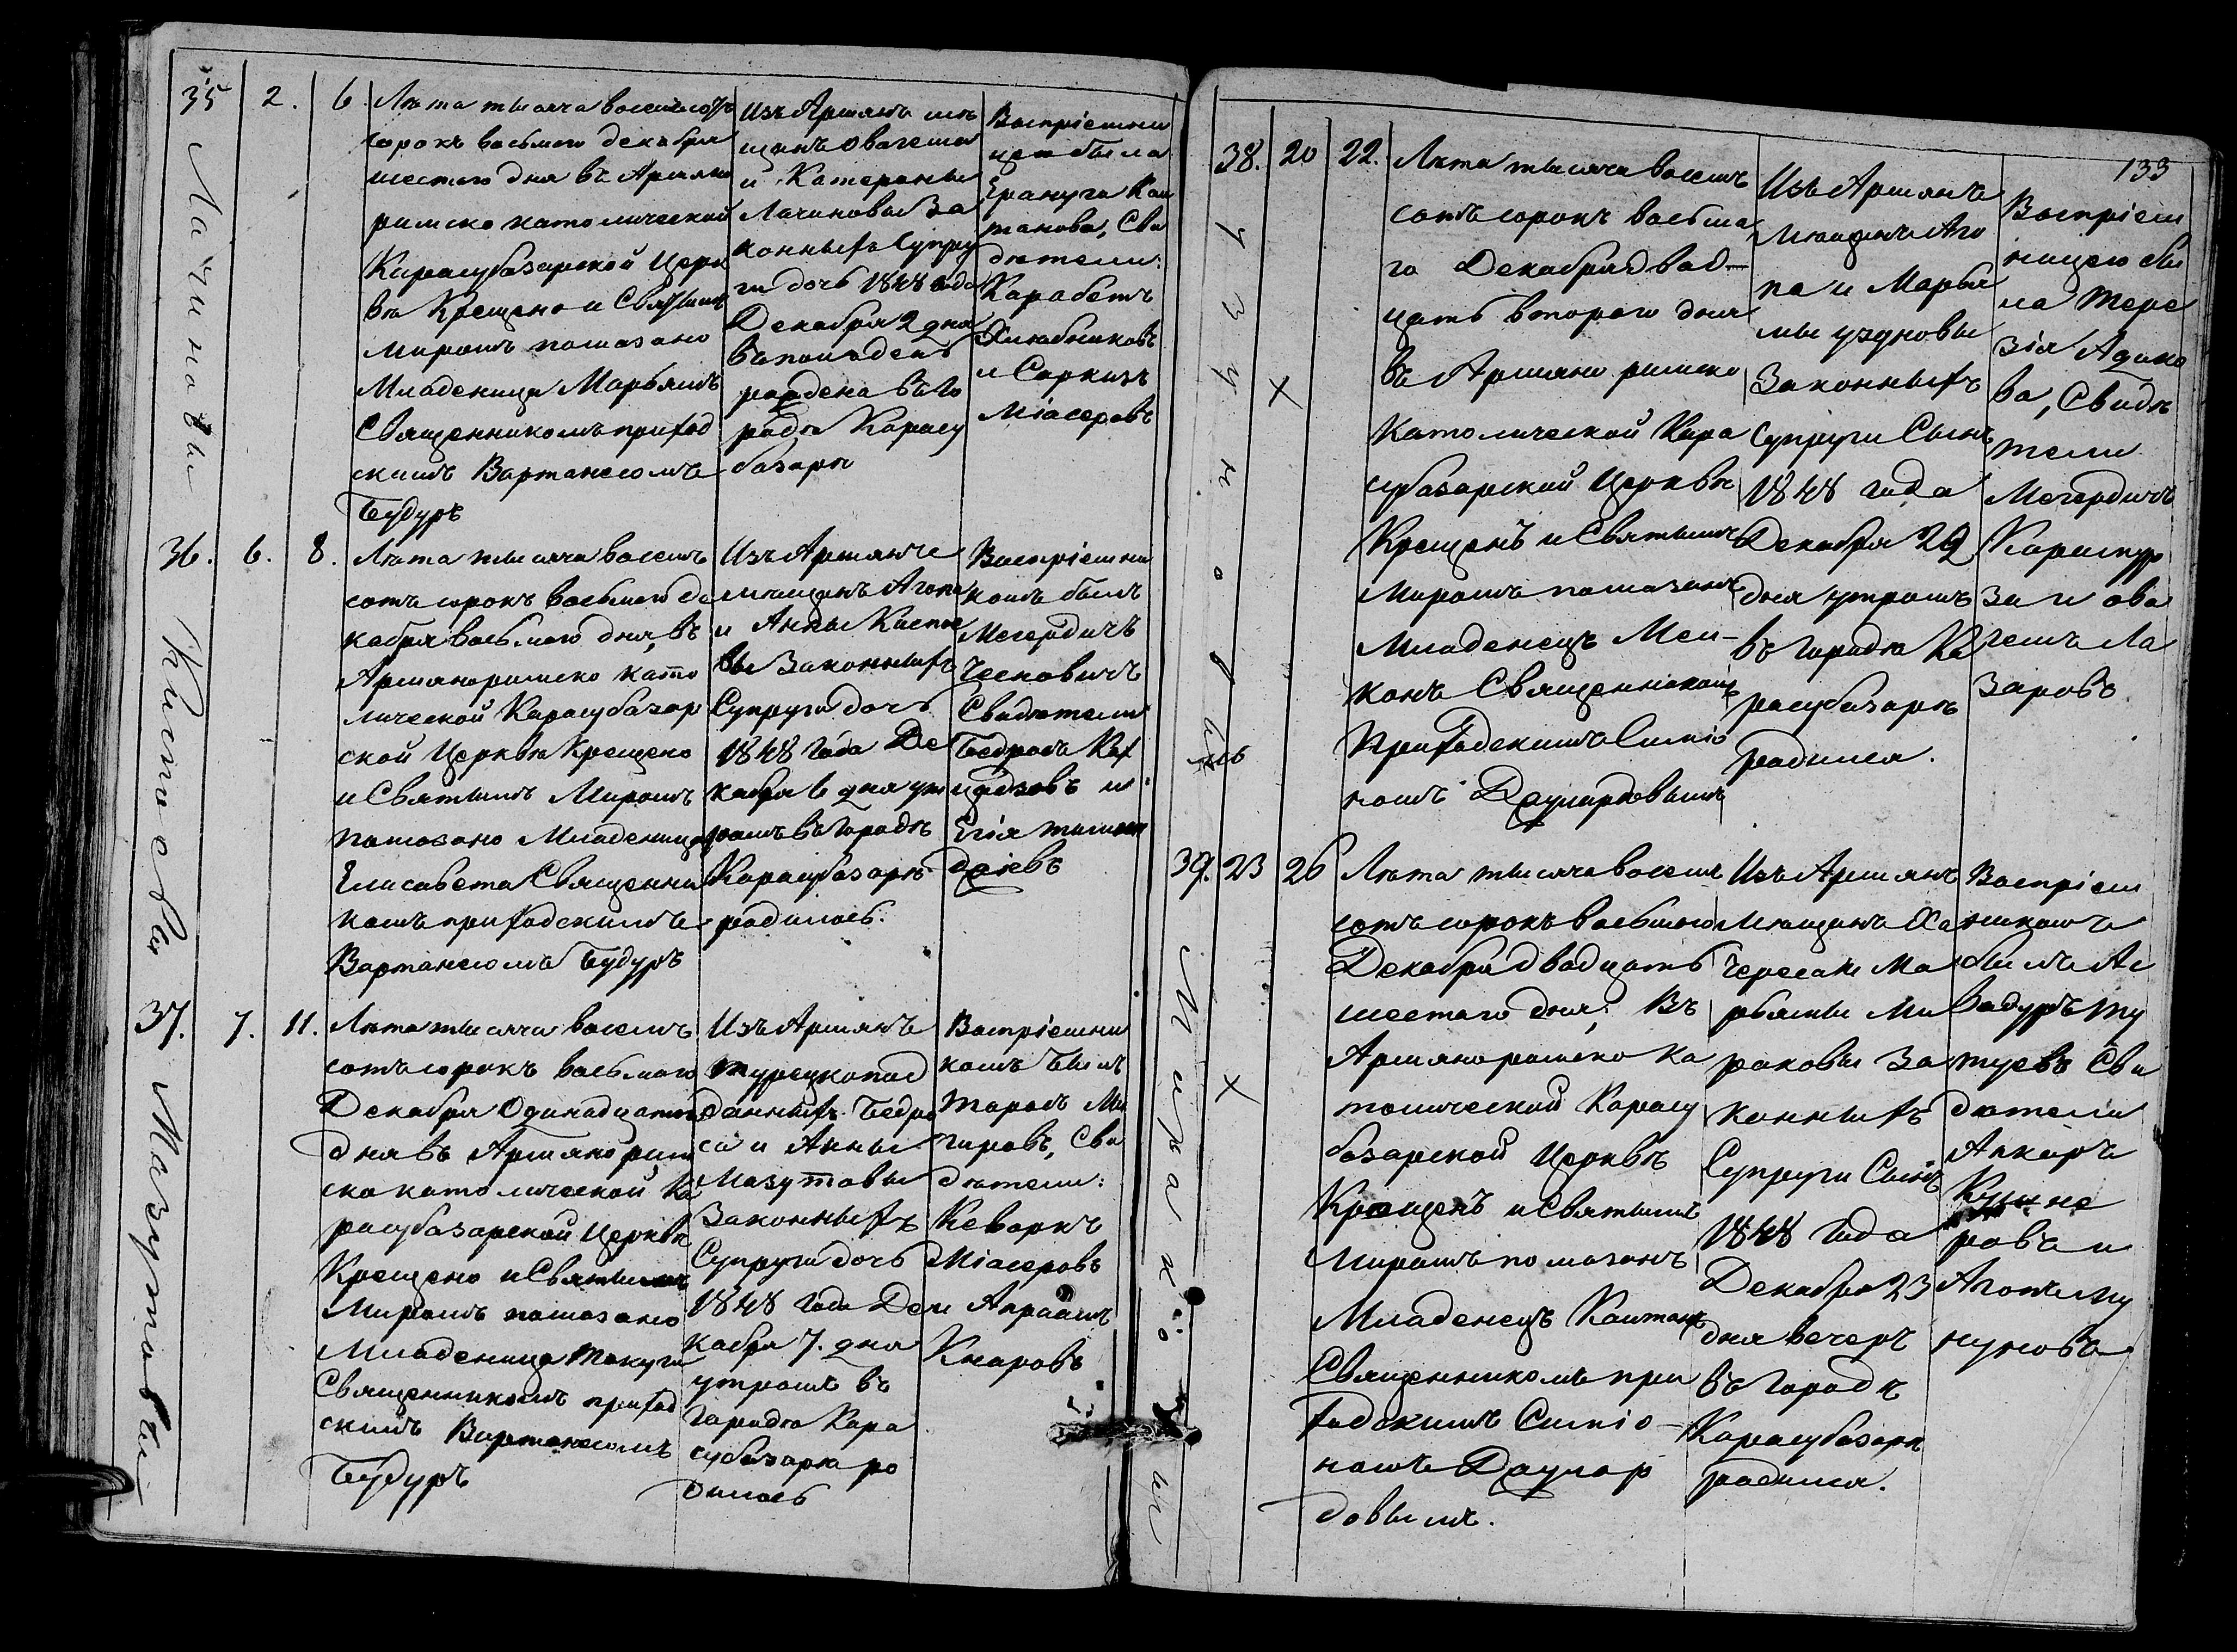 35
2.
6
Лѣта тысяча восемьсотъ
сорокъ восьмого декабря
шестого дня въ Армяно
римско католической
Карасубазарской Церк
вѣ Крещено и Святымъ
миромъ помазано
Младеница Марьямъ
Священникомъ приход
скимъ Вартанесомъ
Бубуръ
Изъ Армянъ мѣ
щанъ Овагеша
и Катерины
Лачиновы За
конныхъ Супру
ги дочь 1848 года
Декабря 2 дня
въ полъ день
рождена въ го
родѣ Карасу
базарѣ
Воспріемни
цею была
Ерануга
танова, Сви
дѣтели:
Карабетъ
Хлѣбниковъ
и Саркизъ
Міасеровъ
Лачиновы
36.
6.
8.
Лѣта тысяча восемь
сотъ сорокъ восьмого де
кабря восьмого дня, въ
Армяноримско като
лической Карасубазар
ской Церквѣ Крещено
и Святымъ Миромъ
помазано Младеница
Елисавета Священни
комъ приходскимъ
Вартанесомъ Бубуръ
Изъ Армянъ
мѣщанъ Агопа
и Анны
вы Законныхъ
Супруги дочь
1848 года Де
кабря 6 дня ут
ромъ въ городѣ
Карасубазарѣ
родилась.
Воспріемни
комъ былъ
Мегердичъ
Чесновичъ
Свидѣтели
Бедросъ
и
Егія
37.
7.
11.
Лѣта тысяча восемь
сотъ сорокъ восьмого
Декабря Одинадцатого
дня въ Армяно рим
ско католической Ка
расубазарской Церквѣ
Крещено и Святымъ
Миромъ помазано
Младеница Такуги
Священникомъ приход
скимъ Вартанесомъ
Бубуръ
Изъ Армянъ
турецкопод
данныхъ Бедро
са и Анны
Мазутовы
Законныхъ
Супруги дочь
1848 года Де
кабря 7. дня
утромъ въ
городѣ Кара
субазарѣ ро
дилась
Воспріемни
комъ былъ
Торосъ Ма
гировъ, Сви
дѣтели:
Кеваркъ
Міасеровъ
и Апраамъ
Кнаровъ
Мазутовы
133
38.
20
22.
Лѣта тысяча восемь
сотъ сорокъ восьма
го Декабря двад-
цать второго дня
въ Армяно римско
Католической Кара
субазарской Церквѣ
Крещенъ и Святымъ
Миромъ помазанъ
Младенецъ Мел-
конъ Священникомъ
Приходскимъ Симіо
номъ Даулардовымъ
Изъ Армянъ
Мѣщанъ Аго
па и Марья
мы узуновы
Законныхъ
Супруги Сынъ
1848 года
Декабря 20
дня утромъ
въ городѣ Ка
расубазарѣ
родился.
Воспріем
ницею бы
ла Тере
зія
ва, Свидѣ
тели
Мегердичъ
Карагур
за и Ова
гешъ Ла
заровъ
39.
23
26
Лѣта тысяча восемь
сотъ сорокъ восьмого
Декабря двадцать
шестого дня, Въ
Армяноримско ка
толической Карасу
базарской Церквѣ
Крещенъ и Святымъ
Миромъ помазанъ
Младенецъ
Священникомъ при
ходскимъ Симіо-
номъ Даулар
довымъ.
Изъ Армянъ
Мѣщанъ Ха
чересъ и Ма
рьямы Ми
раковы За
конныхъ
Супруги Сынъ
1848 года
Декабря 23
дня вечеръ
въ городѣ
Карасубазарѣ
родился.
Воспріем
никомъ
былъ Ас
вадуръ Ту
туевъ Сви
дѣтели
ровъ и
Агопъ
нуновъ